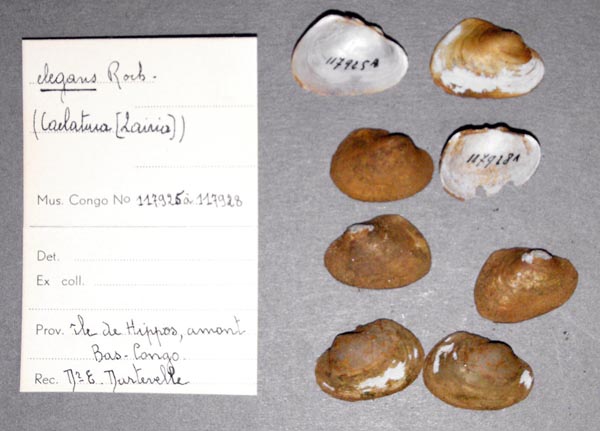 elegans Roch.
(Caelatura [Zairia])
Mus. Congo No 117925 à 117928
Det.
Ex coll.
Prov. Ile de Hippos, amont
Bas-Congo.
Rec. Dr E. Dartevelle
117925A
117928A